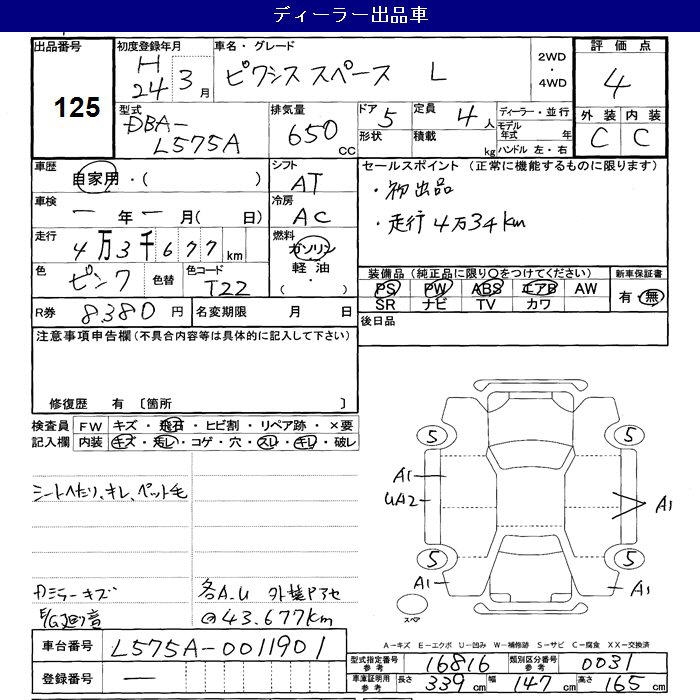 ディーラー出品車
出品番号
125
初度登録年月
H 24 3月
車名・グレード
ピクシススペース L
2WD・4WD
評価点
4
外装 内装
C C
型式
DBA-
L575A
排気量
650 CC
ドア 5
形状
定員 4人
積載 kg
ディーラー・並行
モデル年式 年
ハンドル 左・右
車歴
自家用・( )
シフト
AT
車検
一年一月( 日)
冷房
AC
走行
4万3千677km
燃料
ガソリン
軽油
・( )
色
ピンク
色替
色コード
T22
R券 8380円
名変期限 月 日
セールスポイント (正常に機能するものに限ります)
・初出品
・走行4万34km
装備品 (純正品に限り○をつけてください)
新車保証書
PS PW ABS エアB AW
SR ナビ TV カワ
有・無
後日品
注意事項申告欄(不具合内容等は具体的に記入して下さい)
修復歴 有 〔箇所 〕
検査員記入欄
FW キズ・飛石・ヒビ割・リペア跡・×要
内装 キズ・汚レ・コゲ・穴・スレ・キレ・破レ
シートヘたり、キレ、ペット毛
Dミラーキズ
各A.U
@43.677km
5 5
A1
UA2
A1
5 5
A1
A1
スペア
A-キズ E-エクボ U-凹み W-補修跡 S-サビ C-腐食 XX-交換済
車台番号 L575A-0011901
登録番号 —
型式指定番号 参考 16816
類別区分番号 参考 0031
車庫証明用 参考 長さ 339cm 幅 147cm 高さ 165cm